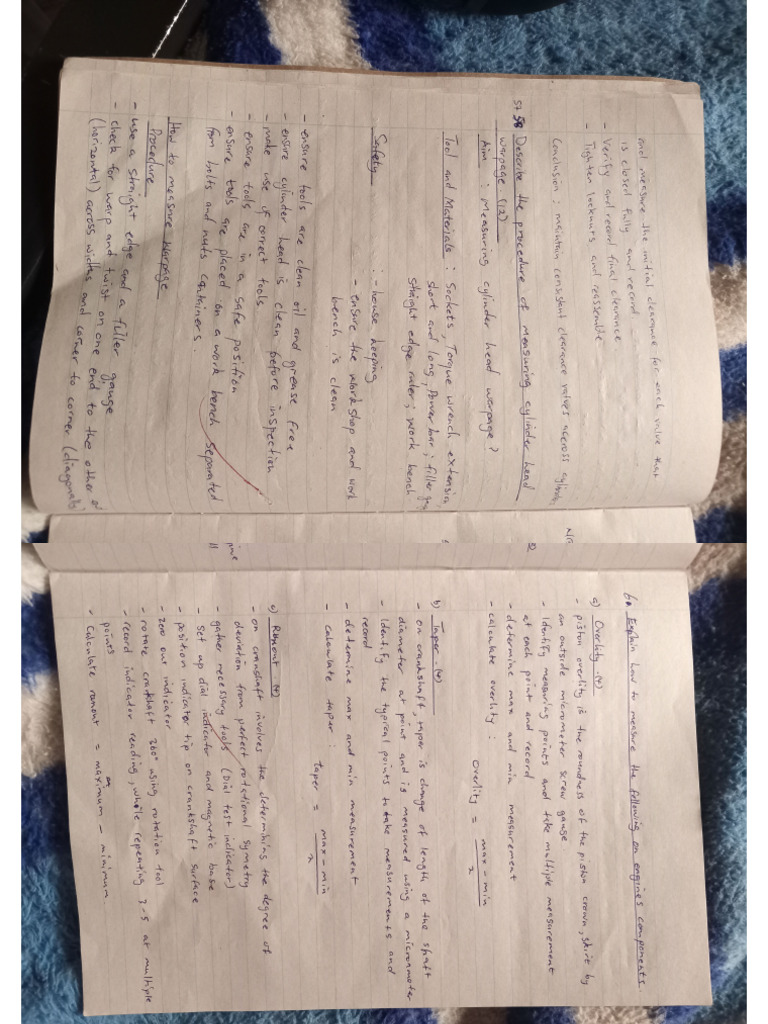 and measure the initial clearance for each valve that
is closed fully and record.
- Verify and record final clearance
- Tighten locknuts and reassemble
Conclusion : maintain consistant clearance values across
57 58 Describe the procedure of measuring cylinder head
warpage. (12)
Aim : measuring cylinder head warpage?
Tool and Materials : Sockets, Torque wrench, extensin
short and long, Power bar; filler
straight edge ruler; work bench
Safety : - house keeping
- ensure the workshop and work
bench is clean
- ensure tools are clean oil and grease free
- ensure cylinder head is clean before inspection
- make use of correct tools
- ensure tools are in a safe position
- ensure tools are placed on a work bench separated
from bolts and nuts containers.
How to measure warpage
Procedure
- use a straight edge and a filler gauge
- check for warp and twist on one end to the other
(horizontal) across widths and corner to corner (diagonals
6a Explain how to measure the following on engines components.
a) Overlity (4)
- piston overlity is the roundness of the piston crown, skirt by
an outside micrometer screw gauge
- Identify measuring points and take multiple measurement
at each point and record
- determine max and min measurement
- calculate overlity :
Overlity = max - min
2
b) Taper (4)
- on crankshaft, taper is change of length of the shaft
diameter at point and is measured using a micromoter
- Identify the typical points to take measurements and
record
- determine max and min measurement
- calculate taper :
taper = max - min
2
c) Runout (4)
- on crankshaft involves the determining the degree of
deviation from perfect rotational symetry
- gather necessary tools (Dial test indicator)
- set up dial indicator and magnetic base
- position indicator tip on crankshaft surface
- zero out indicator
- rotate crankshaft 360° using rotation tool
- record indicator reading, while repeating 2-5 at multiple
points
- Calculate runout = maximum - minimum.